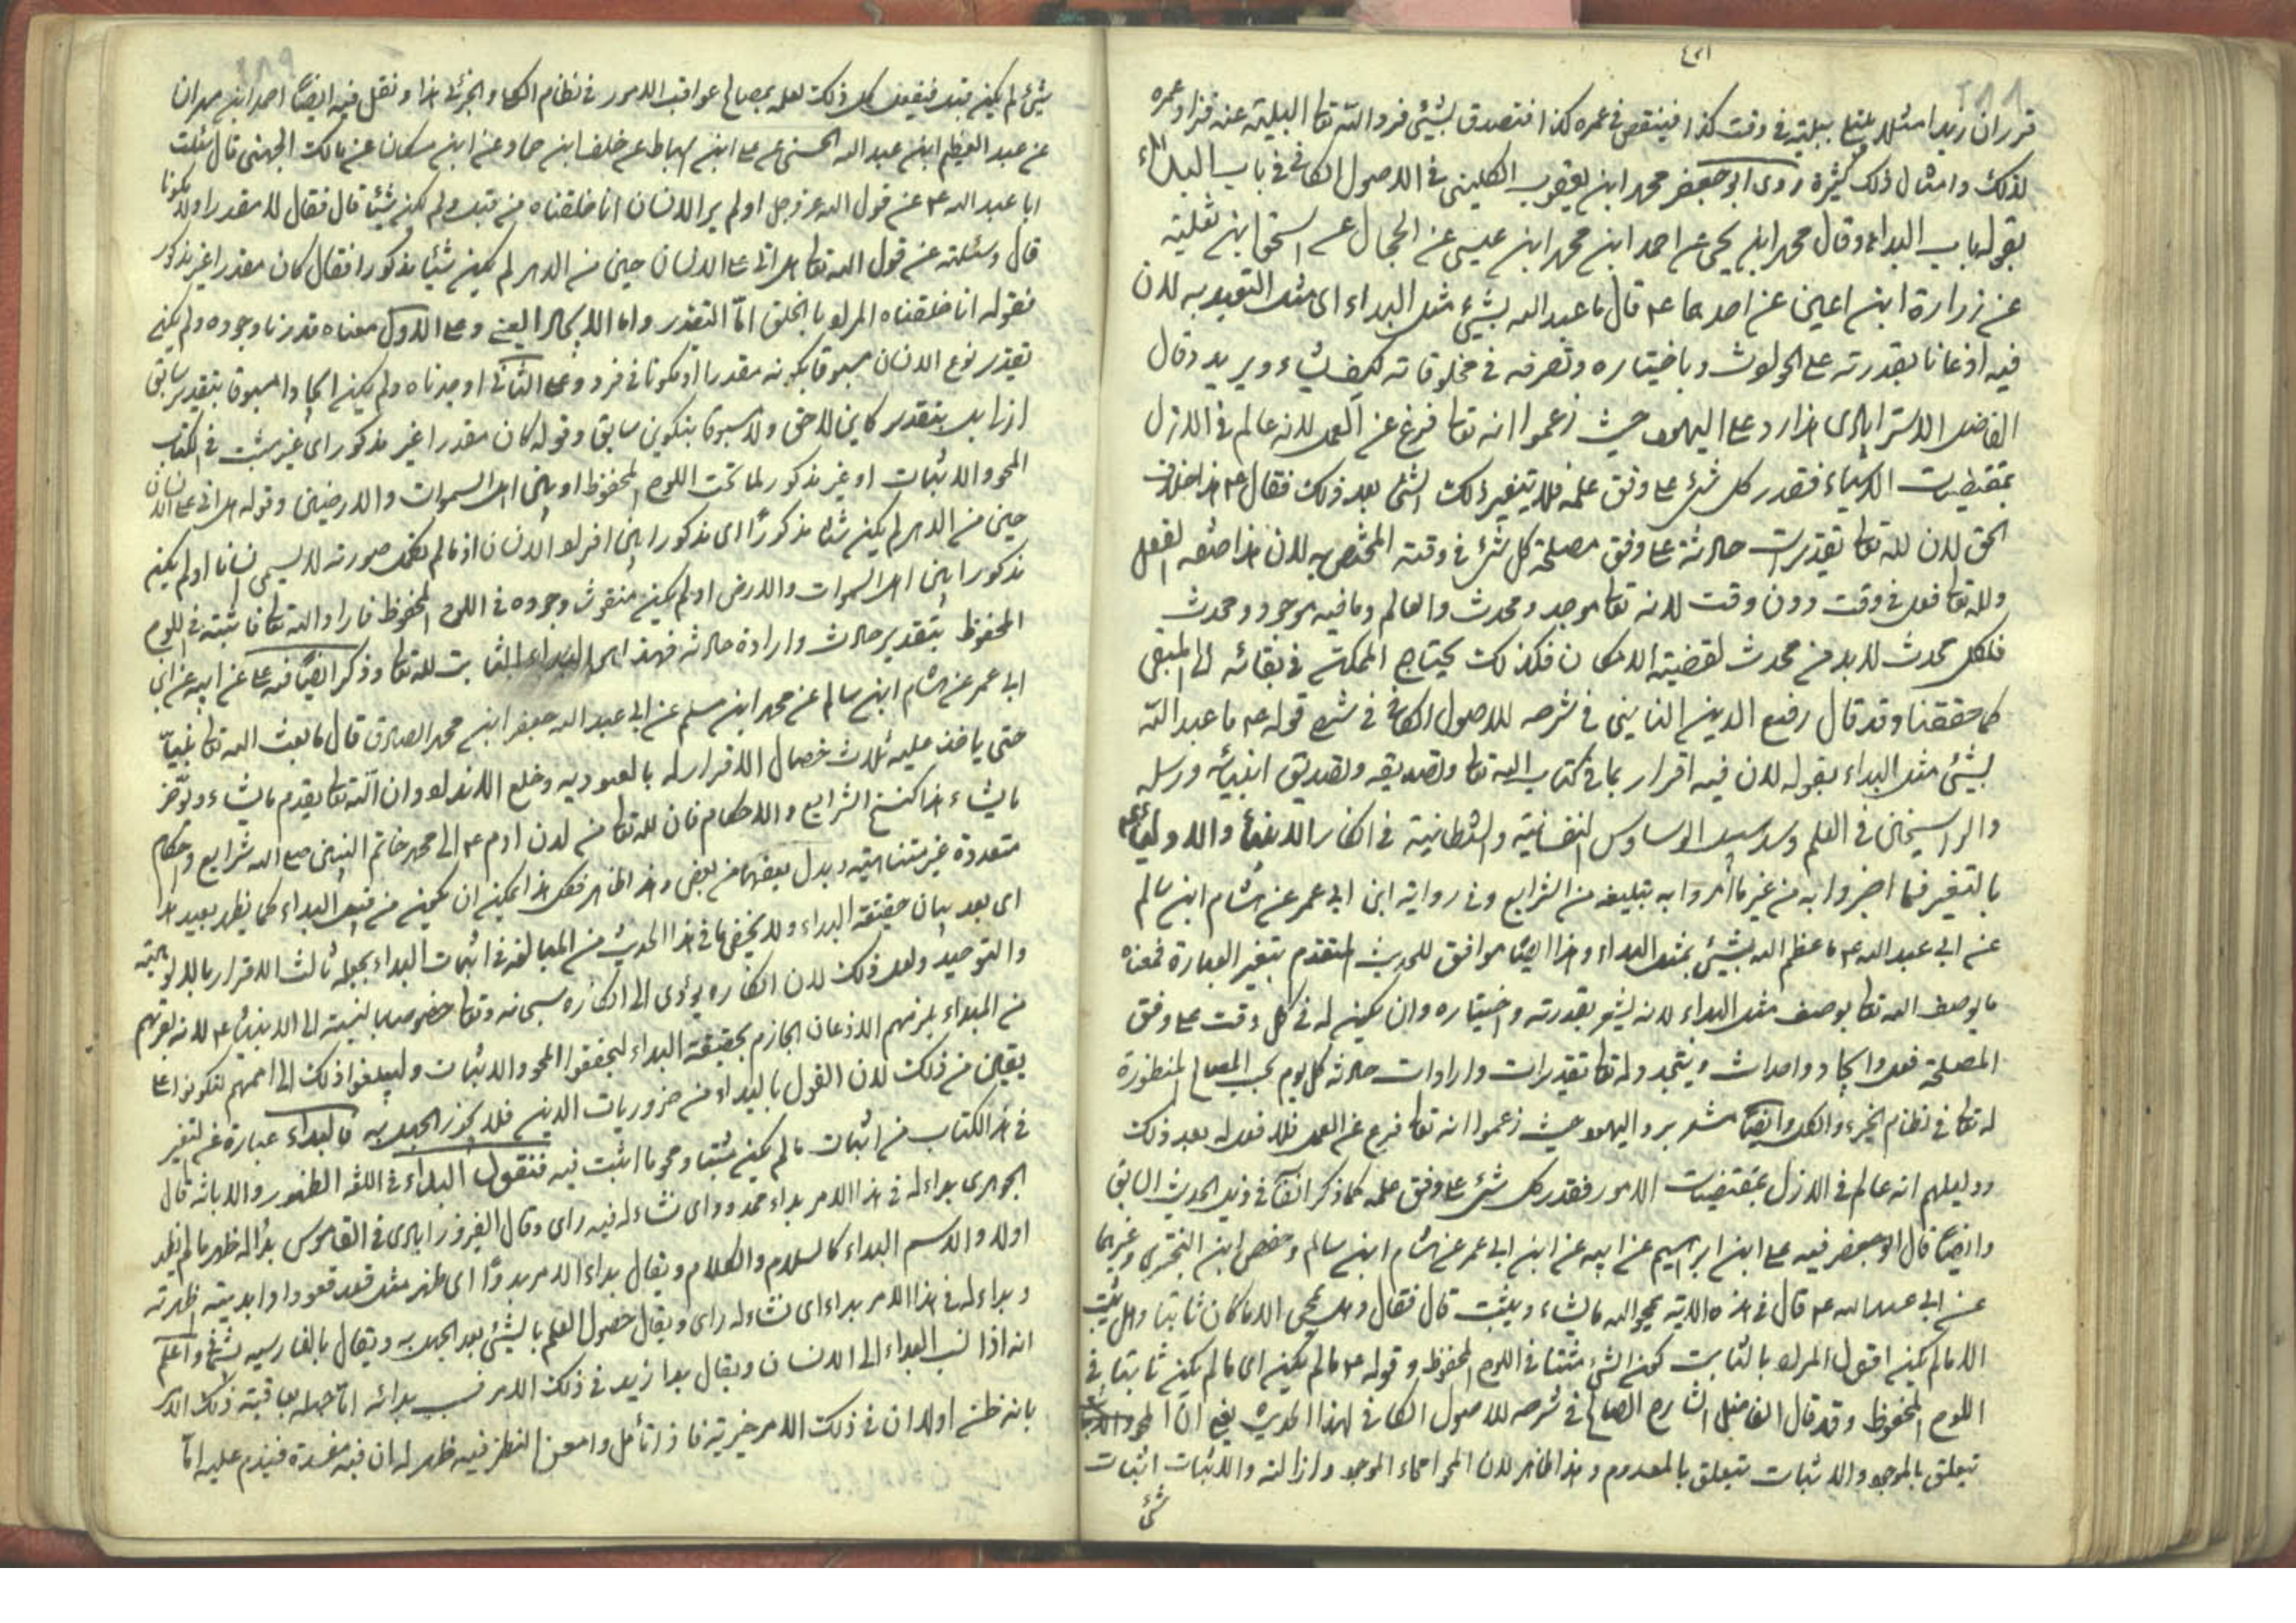 قرر ان زيدا مثلا يبتلى ببلية فى وقت كذا فينقص فى عمره كذا فتصدق بشيئ فرد الله تعا البلية عنه فزاد عمره
لذلك وامثال ذلك كثيرة روى ابو جعفر محمد ابن يعقوب الكلينى فى الاصول الكافى فى باب البداء
بقوله باب البداء وقال محمد ابن يحيى عن احمد ابن محمد ابن عيسى عن الحجال عن اسحق ابن ثعلبة
عن زرارة ابن اعين عن احدهما ع قال ما عبد الله بشيئ مثل البداء اى مثل التعبد به لان
فيه اذعانا بقدرته على الحوادث وباختياره وتصرفه فى مخلوقاته كيف يشاء ويريد وقال
الفاضل الاسترابادى هذا رد على اليهود حيث زعموا انه تعا فرغ عن العمل لانه عالم فى الازل
بمقتضيات الاشياء فقدر كل شئ على وفق علمه فلا يتغير ذلك الشئ بعد ذلك فقال ع هذا خلاف
الحق لان لله تعا تقديرات حادثة على وفق مصلحة كل شئ فى وقته المختص به لان هذا صفة الفعل
ولله تعا فعل فى وقت دون وقت لانه تعا موجد ومحدث والعالم وما فيه موجود ومحدث
فلكل محدث لا بد من محدث لقضية الامكان فكذلك يحتاج الممكن فى بقائه الى المبقى
كما حققنا وقد قال رفيع الدين النائينى فى شرحه للاصول الكافى فى شرح قوله ع ما عبد الله
بشيئ مثل البداء بقوله لان فيه اقرار بما فى كتاب الله تعا وتصديقه وتصديق انبيائه ورسله
والراسخين فى العلم وسد سبيل الوساوس النفسانية والشيطانية فى انكار الانبياء والاولياء ع
بالتغير فيما اخبروا به من غير ما امروا به بتبليغه من الشرايع وفى رواية ابن ابى عمير عن هشام ابن سالم
عن ابى عبد الله ع ما عظم الله بشيئ بمثل البداء وهذا ايضا موافق للحديث المتقدم بتغير العبارة فمعناه
ما يوصف الله تعا بوصف مثل البداء لانه يشعر بقدرته واختياره وان يكون له فى كل وقت على وفق
المصلحة فعل وايجاد واحداث ويتجدد له تعا تقديرات وارادات حادثة كل يوم بحسب المصالح المنظورة
له تعا فى نظام الجزء والكل وايضا مشعر برد اليهود حيث زعموا انه تعا فرغ عن العمل فلا فعل له بعد ذلك
ودليلهم انه عالم فى الازل بمقتضيات الامور فقدر كل شئ على وفق علمه كما ذكر انفا فى ذيل الحديث السابق
وايضا قال ابو جعفر فيه على ابن ابراهيم عن ابيه عن ابن ابى عمير عن هشام ابن سالم وحفص ابن البخترى وغيرهما
عن ابى عبد الله ع قال فى هذه الاية يمحو الله ما يشاء ويثبت قال فقال وهل يمحى الا ما كان ثابتا وهل يثبت
الا ما لم يكن اقول المراد بالثابت كون الشئ مثبتا فى اللوح المحفوظ وقوله ع ما لم يكن اى ما لم يكن ثابتا فى
اللوح المحفوظ وقد قال الفاضل الشارح الصالح فى شرحه للاصول الكافى لهذا الحديث يعنى ان المحو
تيعلق بالموجود والاثبات يتعلق بالمعدوم وهذا ظاهر لان المحو امحاء الموجود وازالته والاثبات اثبات
شئ
شيئ لم يكن قبل فيفعل كل ذلك لعلمه بمصالح عواقب الامور فى نظام الكل والجزئى هذا ونقل فيه ايضا احمد ابن مهران
عن عبد العظيم ابن عبد الله الحسنى عن على ابن اسباط عن خلف ابن حماد عن ابن مسكان عن مالك الجهنى قال سئلت
ابا عبد الله ع عن قول الله عز وجل اولم ير الانسان انا خلقناه من قبل ولم يكن شيئا قال فقال لا مقدرا ولا مكونا
قال وسئلته عن قول الله تعا هل اتى على الانسان حين من الدهر لم يكن شيئا مذكورا فقال كان مقدرا غير مذكور
فقوله انا خلقناه المراد بالخلق اما التقدير واما الايجاد العينى وعلى الاول معناه قدرنا وجوده ولم يكن
تقدير نوع الانسان مسبوقا بكونه مقدرا او مكونا فى فرد وعلى الثانى اوجدناه ولم يكن ايجادا مسبوقا بتقدير سابق
ازلا بل بتقدير كاين لاحق ولا مسبوقا بتكوين سابق وقوله كان مقدرا غير مذكور اى غير مثبت فى الكتاب
المحو والاثبات او غير مذكور لما تحت اللوح المحفوظ او بين اهل السموات والارضين وقوله هل اتى على الانسان
حين من الدهر لم يكن شيئا مذكورا اى مذكورا بين افراد الانسان اذ ما لم يكمل صورته لا يسمى انسانا او لم يكن
مذكورا بين اهل السموات والارض او لم يكن منقوش وجوده فى اللوح المحفوظ فاراد الله تعا فاثبته فى اللوح
المحفوظ بتقدير حادث وارادة حادثه فهذا هو البداء الثابت لله تعا وذكر ايضا فيه على عن ابيه عن ابن
ابى عمير عن هشام ابن سالم عن محمد ابن مسلم عن ابى عبد الله جعفر ابن محمد الصادق قال ما بعث الله تعا نبيا
حتى ياخذ عليه ثلاث خصال الاقرار له بالعبودية وخلع الانداد وان الله تعا يقدم ما يشاء ويؤخر
ما يشاء هذا كنسخ الشرايع والاحكام فان لله تعا من لدن ادم ع الى محمد خاتم النبيين صلى الله شرايع واحكام
متعددة غير متناهية وبدل بعضها من بعض وهذا ظاهر فعلى هذا يمكن ان يكون من قبيل البداء كما يظهر بعيد هذا
اى بعد بيان حقيقة البداء ولا يخفى ما فى هذا الحديث من المبالغة فى اثبات البداء بجعله ثالث الاقرار بالالوهية
والتوحيد ولعل ذلك لان انكاره يؤدى الى انكاره سبحانه وتعا خصوصا بالنسبة الى الانبياء ع لانه لقربهم
من المبداء يلزمهم الاذعان الجازم بحقيقة البداء ليحققوا المحو والاثبات وليبلغوا ذلك الى اممهم لتكونوا على
يقين من ذلك لان القول بالبداء من ضروريات الدين فلا يجوز الجهل به فالبداء عبارة عن لتغير
فى هذا الكتاب من اثبات ما لم يكن مثبتا ومحو ما اثبت فيه فنقول البداء فى اللغة الظهور والابانة قال
الجوهرى بداء له فى هذا الامر بداء ممدود اى نشاء له فيه راى وقال الفيروزابادى فى القاموس بدا له ظهر ما لم يظهر
اولا والاسم البداء كالسلام والكلام ويقال بداء الامر بدوا اى ظهر مثل قعد قعودا وابديته اظهرته
وبداء له فى هذا الامر بداء اى نشاء له راى ويقال حصول العلم بالشيئ بعد الجهل به ويقال بالفارسيه واعلم
انه اذا نسب البداء الى الانسان ويقال بدا زيد فى ذلك الامر فسبب بدائه اما جهله بعاقبة ذلك الامر
بانه ظن اولا ان فى ذلك الامر خيرية فاذا تأمل وامعن النظر فيه ظهر له ان فيه مفسدة فيندم عليه اما